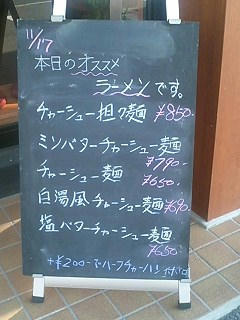 11/17
本日のオススメ
ラーメンです。
チャーシュー担々麺 ¥850-
ミソバターチャーシュー麺
¥790-
チャーシュー麺
¥650-
白湯風チャーシュー麺 ¥690-
塩バターチャーシュー麺
¥650-
+¥200-でハーフチャーハン